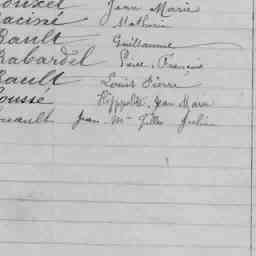 ouxel Jean Marie
acine Mathurin
Rault Guillaume
Rabardel Pierre, François
Rault Louis Pierre
ousse Hippolite, Jean Marie
uault Jean Mie Gilles Julien